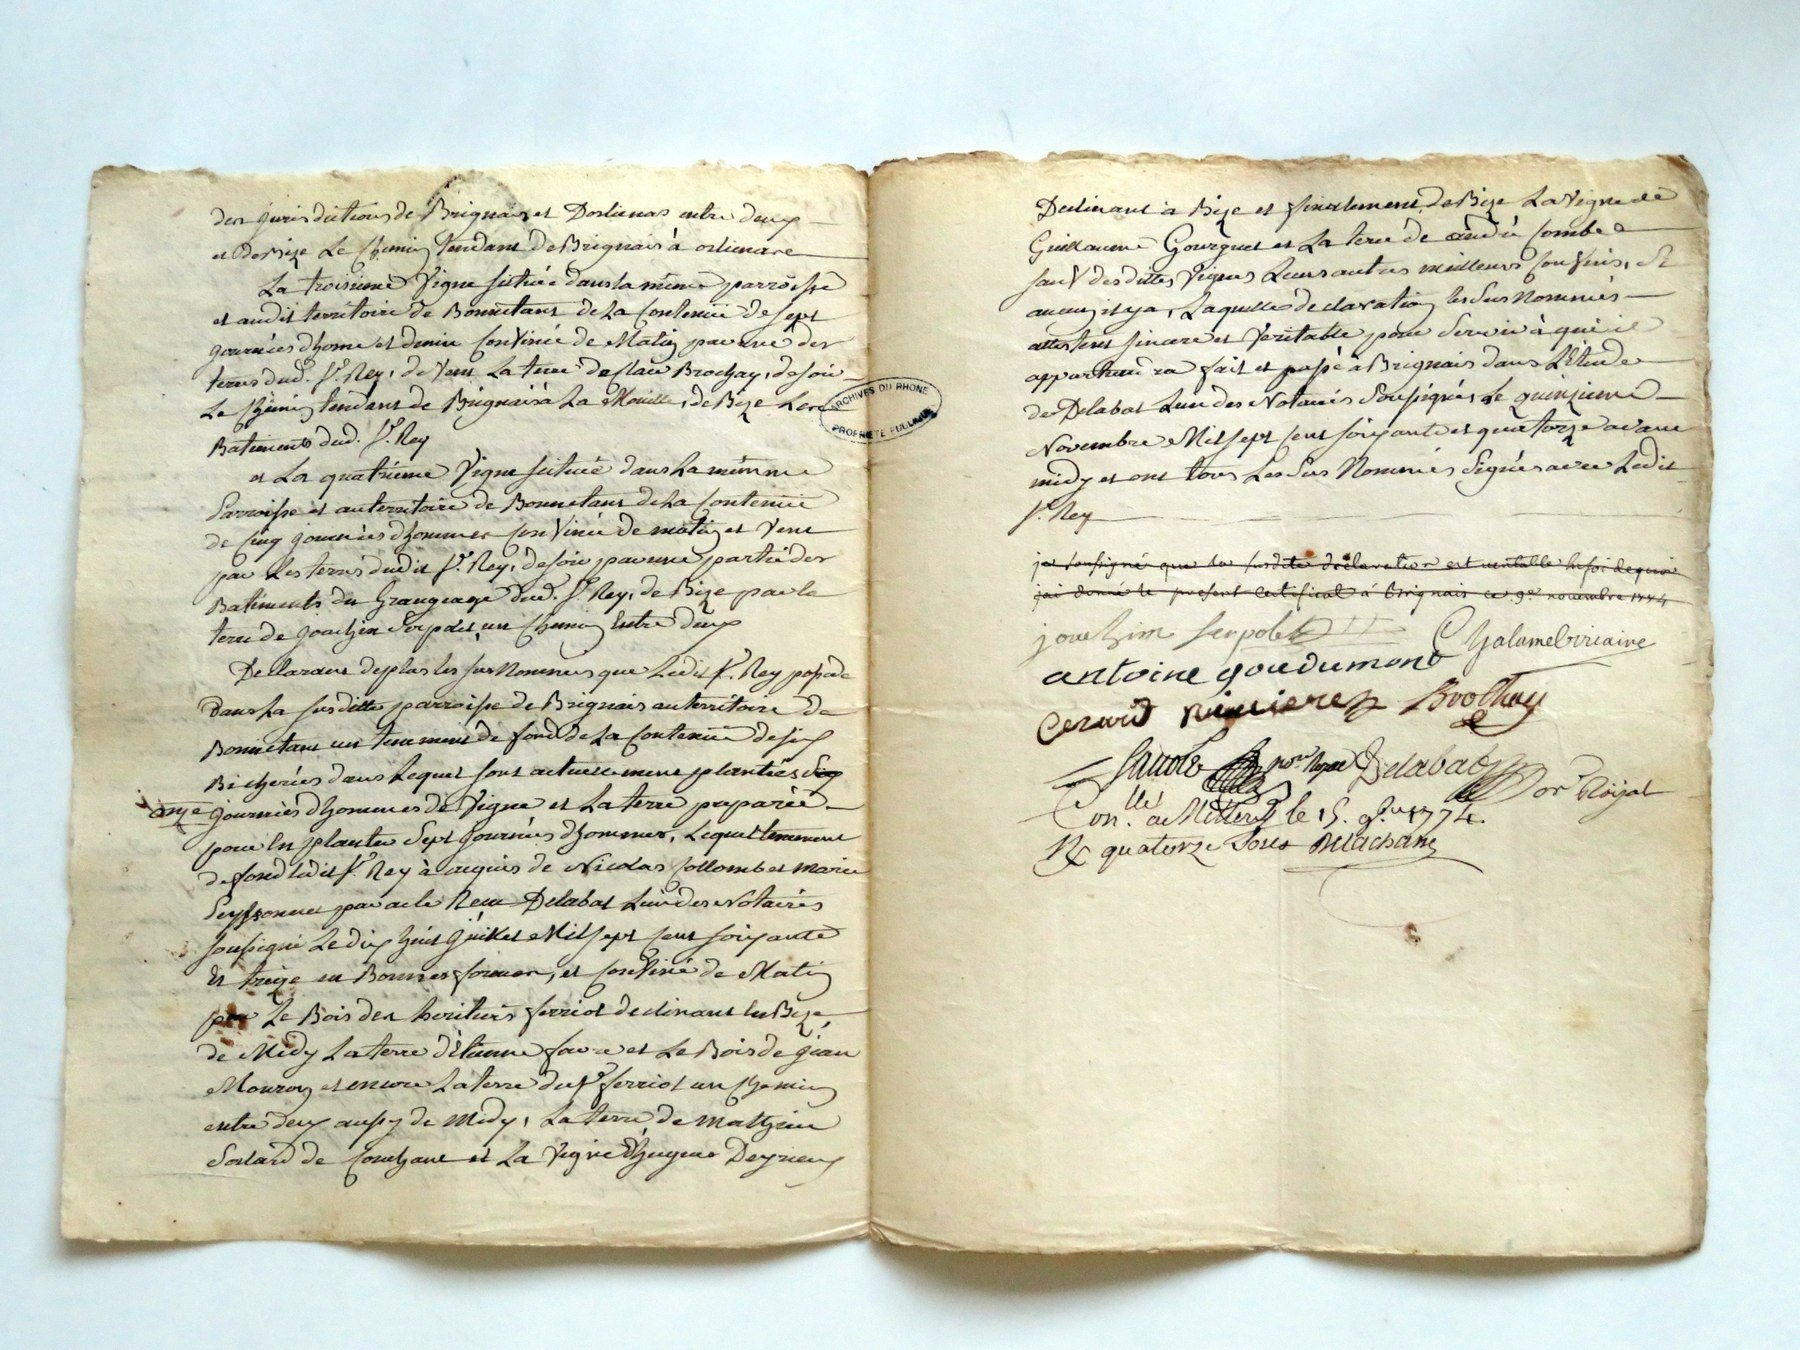 des jurisdictions de Brignais et Dorlienas entre deux
et de Bize Le Chemin tendant de Brignais à orlienas
La troisieme Vigne située dans la même parroisse
et audit territoire de Bonnetans de La Contenüe de sept
journées dhome et demie Confinée de Matin par une des
terres dud. Sr. Rey, de Vent La terre de Brochay, de soir
Le Chemin tendant de Brignais à La Mouille, de Bize Les
Batiments dud. Sr. Rey
et La quatrieme Vigne située dans La mêmme
Parroisse et au territoire de Bonnetans de La Contenüe
de Cinq journées dhommes Confinée de matin et Vent
par Les terres dudit Sr. Rey, de soir par une partie des
Batiments du Grangeage dud. Sr. Rey, de Bize par la
terre de Joachin Serpolet, un Chemin Entre deux
Declarant de plus les sus Nommés que Ledit Sr. Rey possede
Dans La susditte parroisse de Brignais au territoire de
Bonnetans un tenement de fond de La Contenüe de six
Bicherées dans Lequel sont actuellement plantées
onze journées dhommes de Vigne et La terre preparée
pour En planter Sept journées dhommes, Lequel tenement
de fond ledit Sr. Rey à acquis de Nicolas Collomb et Marie
Peyssonner par acte Recu Delabat L'un des Notaires
soussigné Le dix huit Juillet Mil sept cent soixante
Et treize en Bonnes formes, et Confiné de Matin
par Le Bois des heritiers ferriot declinant En Bize
de Midy La terre d'Etienne fava et Le Bois de Jean
Mouron et encore La terre du Sr. ferriot un Chemin
entre deux aussy de Midy, La terre de Mathieu
de et La Vigne
Declinant à Bize et finalement de Bize La Vigne de
Guillaume Gourguet et La terre de andré Combe
sauf desdittes Vignes Leurs autres meilleurs Confins, Si
aucun il y a, Laquelle declaration les Sus Nommés
attestent sincere et Veritable pour Servir à qui il
appartiendra fait et passé à Brignais dans L'Etude
de Delabat L'un des Notaires Soussignés, Le quinzieme
Novembre Mil sept cent soixante et quatorze avant
midy et ont tous Les Sus Nommés Signés avec Ledit
Sr. Rey
je soussigné que la susdite déclaration est veritable En foi de quoi
jai donné le present Certificat à Brignais ce 9e novembre 1774
joachim serpolet
Antoine goudumont
Brochay
Delabat
Nore Royal
Conllé à Millery le 15. 9bre 1774.
R quatorze Sous Delachand
ARCHIVES DU RHONE
PROPRIÉTÉ PUBLIQUE